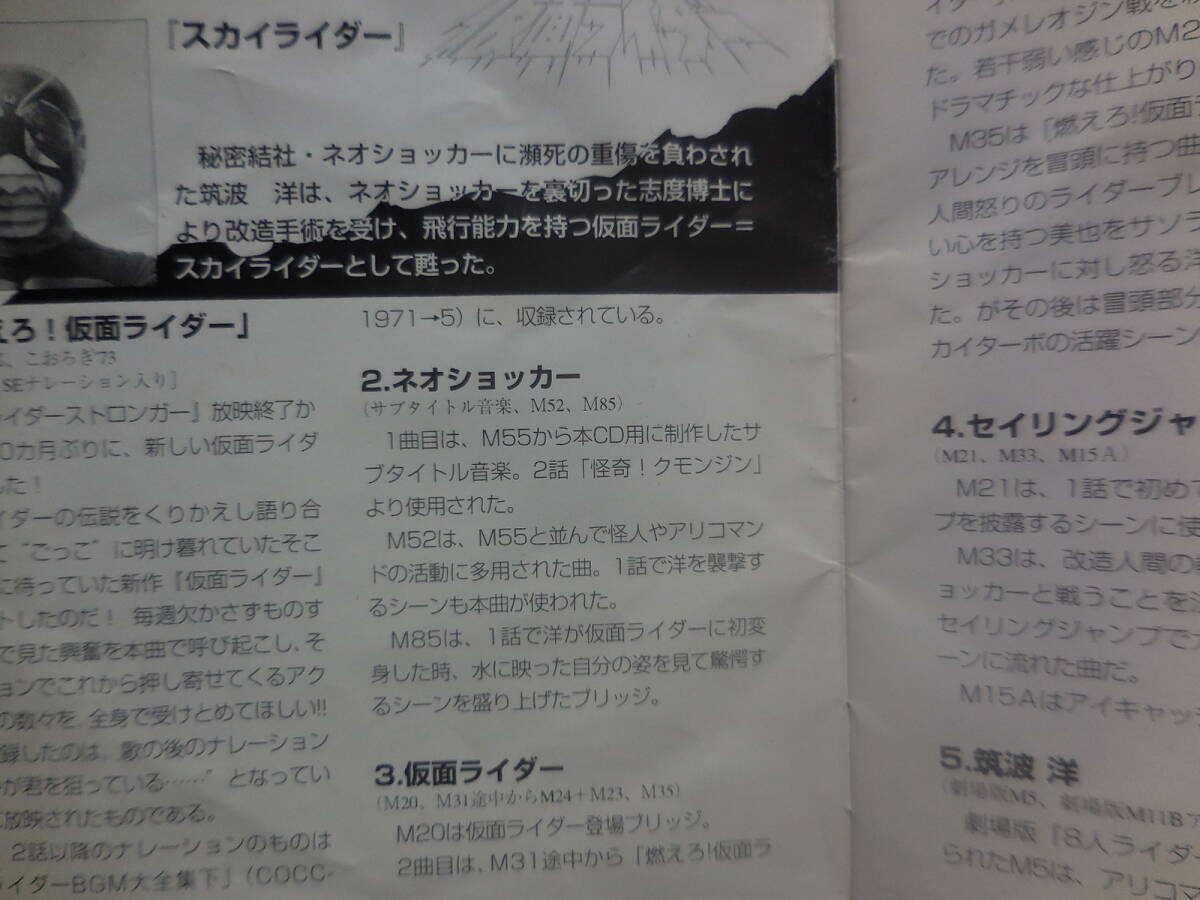 『スカイライダー』
秘密結社・ネオショッカーに瀕死の重傷を負わされ
た筑波　洋は、ネオショッカーを裏切った志度博士に
より改造手術を受け、飛行能力を持つ仮面ライダー＝
スカイライダーとして甦った。
えろ！仮面ライダー」
こおろぎ'73
SEナレーション入り］
イダーストロンガー』放映終了か
0カ月ぶりに、新しい仮面ライダ
した！
イダーの伝説をくりかえし語り合
て“ごっこ”に明け暮れていたそこ
に待っていた新作『仮面ライダー』
トしたのだ！ 毎週欠かさずものす
で見た興奮を本曲で呼び起こし、そ
ョンでこれから押し寄せてくるアク
の数々を、全身で受けとめてほしい!!
録したのは、歌の後のナレーション
が君を狙っている……” となってい
放映されたものである。
2話以降のナレーションのものは
イダーBGM大全集下」（COCC-
1971→5）に、収録されている。
2.ネオショッカー
（サブタイトル音楽、M52、M85）
1曲目は、M55から本CD用に制作したサ
ブタイトル音楽。2話「怪奇！クモンジン」
より使用された。
M52は、M55と並んで怪人やアリコマン
ドの活動に多用された曲。1話で洋を襲撃す
るシーンも本曲が使われた。
M85は、1話で洋が仮面ライダーに初変
身した時、水に映った自分の姿を見て驚愕す
るシーンを盛り上げたブリッジ。
3.仮面ライダー
（M20、M31途中からM24＋M23、M35）
M20は仮面ライダー登場ブリッジ。
2曲目は、M31途中から「燃えろ!仮面ラ
でのガメレオジン戦を
た。若干弱い感じのM2
ドラマチックな仕上がり
M35は「燃えろ!仮面
アレンジを冒頭に持つ曲
人間怒りのライダーブレ
い心を持つ美也をサソラ
ショッカーに対し怒る洋
た。がその後は冒頭部分
カイターボの活躍シーン
4.セイリングジャ
（M21、M33、M15A）
M21は、1話で初め
プを披露するシーンに使
M33は、改造人間の
ョッカーと戦うことを
セイリングジャンプで
ーンに流れた曲だ。
M15Aはアイキャッ
5.筑波 洋
（劇場版M5、劇場版M11B
劇場版『8人ライダ
られたM5は、アリコマ